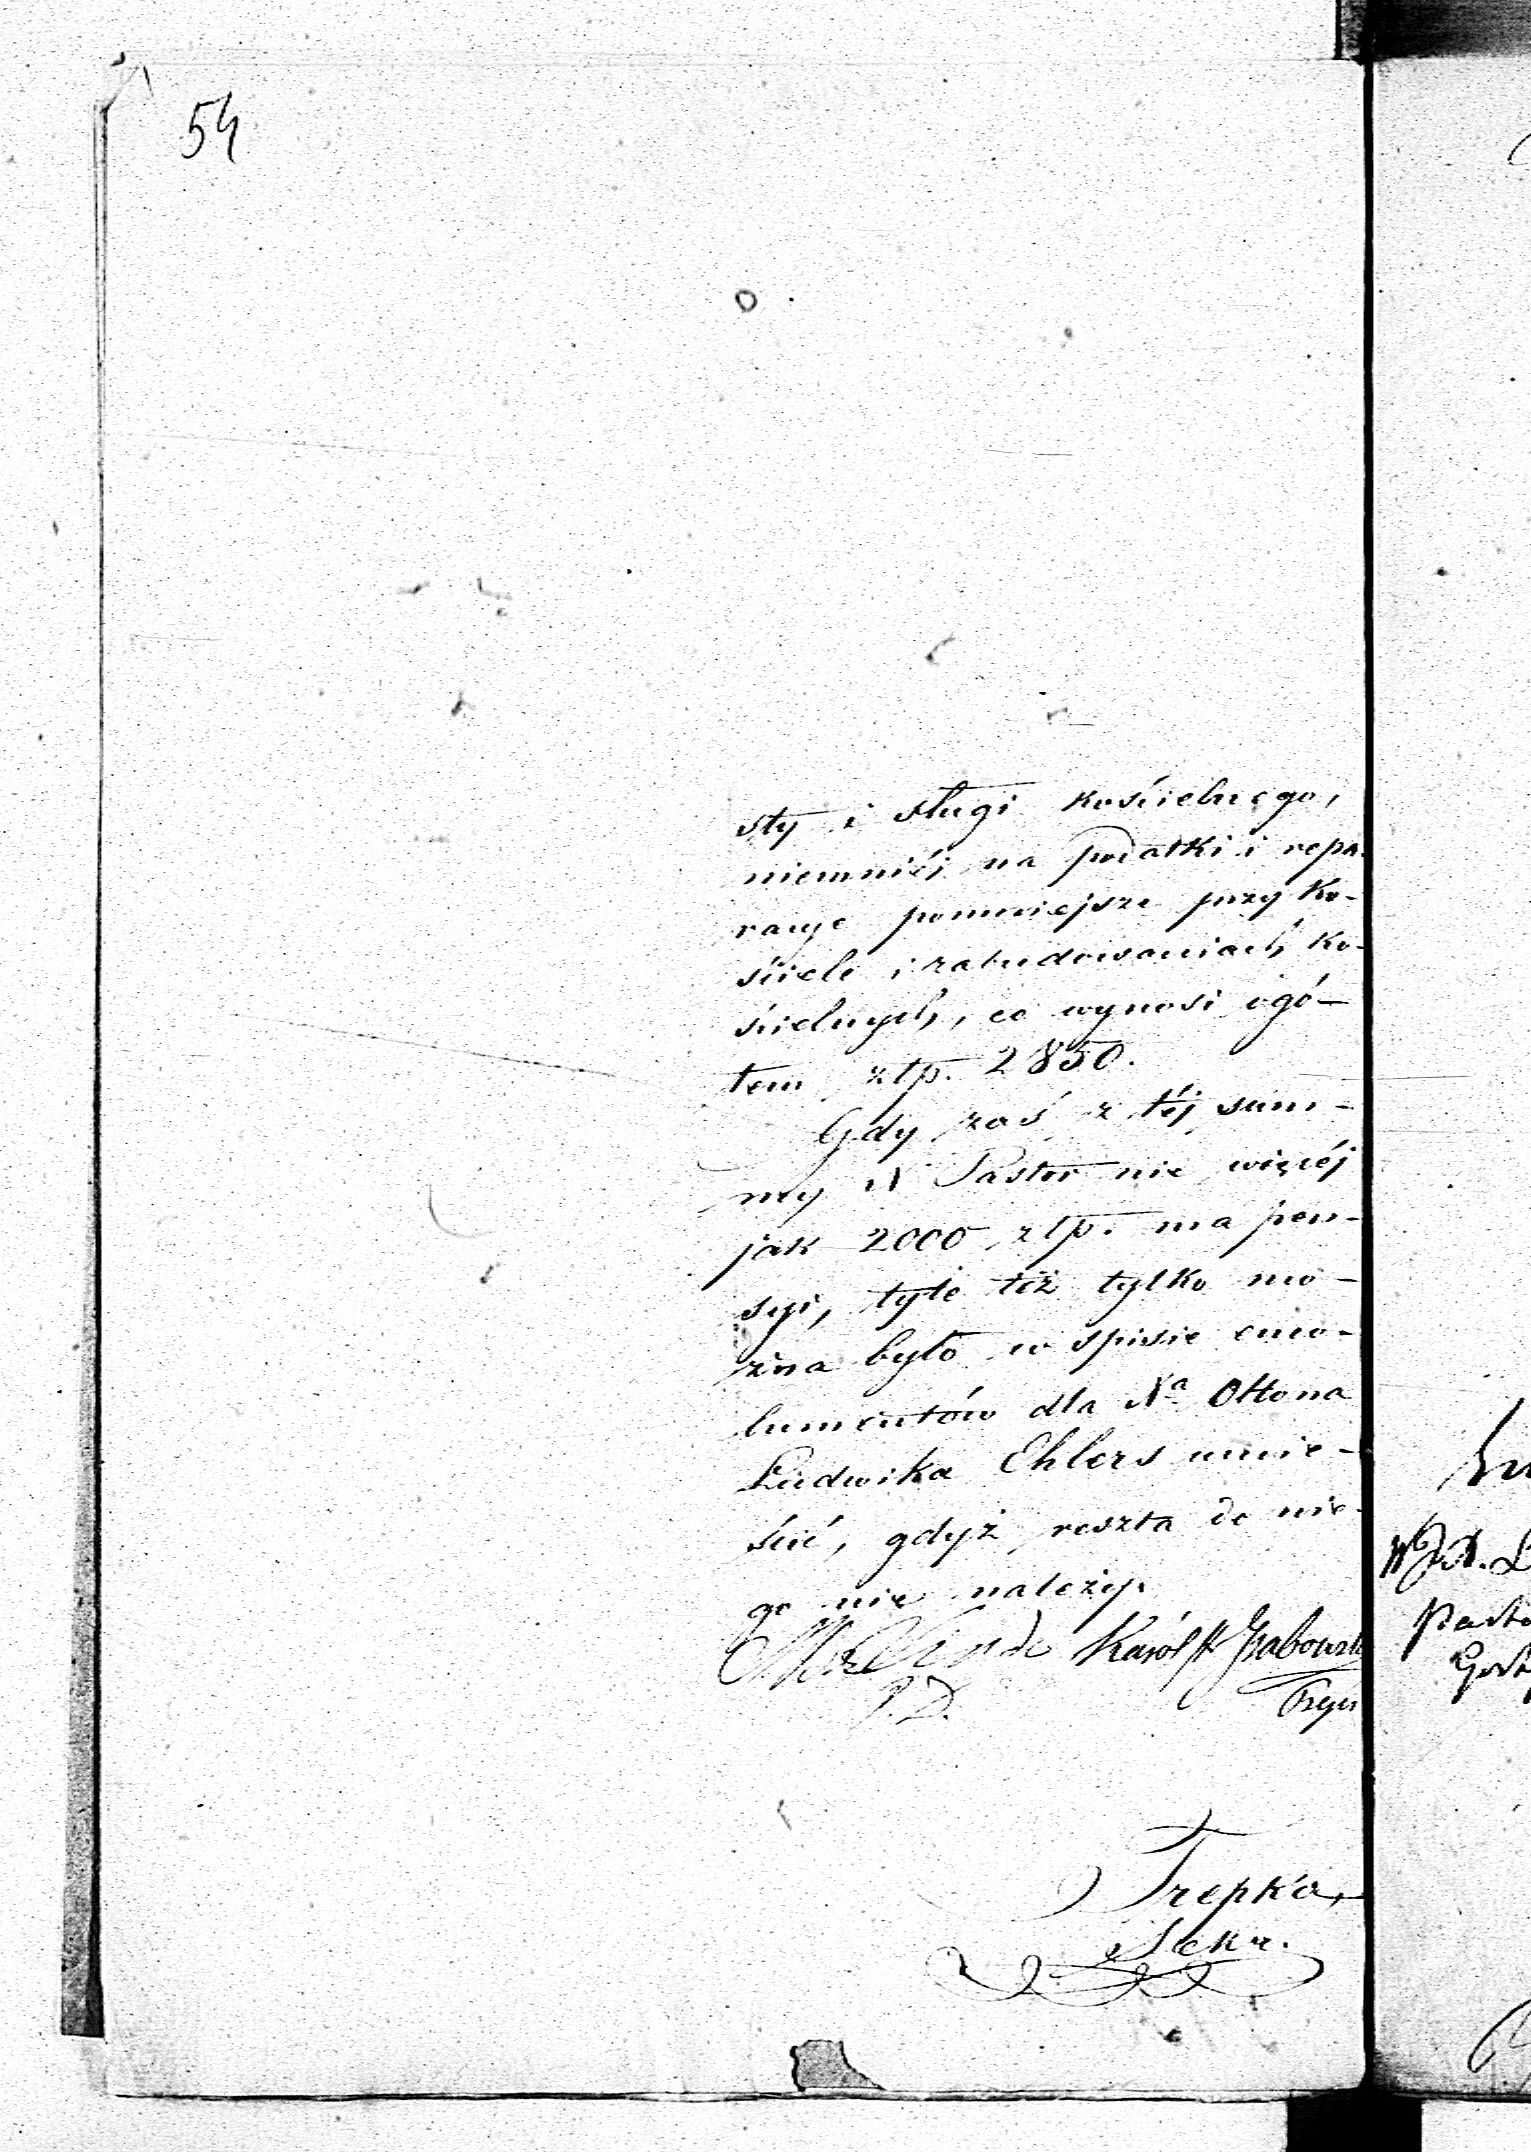 54
sty i sługi kościelnego,
niemniéj na podatki i repa-
racye pomniejsze przy Ko-
ściele i zabudowaniach Ko-
ścielnych, co wynosi ogó-
łem złp. 2850.
Gdy zaś z téj sum-
my N Pastor nie więcéj
jak 2000 złp. ma pen-
syi, tyle też tylko mo-
żna było w spisie emo-
lumentów dla Na Ottona
Ludwika Ehlers umie-
ścić, gdyż reszta do nie-
go nie należy.
Karól Grabowsk
P. D.
Trepka,
Sekr.